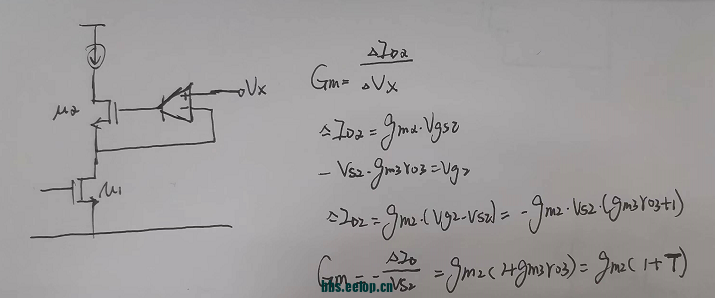 Vx
M2
M1
Gm = ΔID2 / ΔVx
ΔID2 = gm2·Vgs2
- Vs2·gm3ro3 = Vg2
ΔID2 = gm2·(Vg2-Vs2) = -gm2·Vs2·(gm3ro3+1)
Gm = -ΔID / Vs2 = gm2(1+gm3ro3) = gm2(1+T)
bbs.eetop.cn